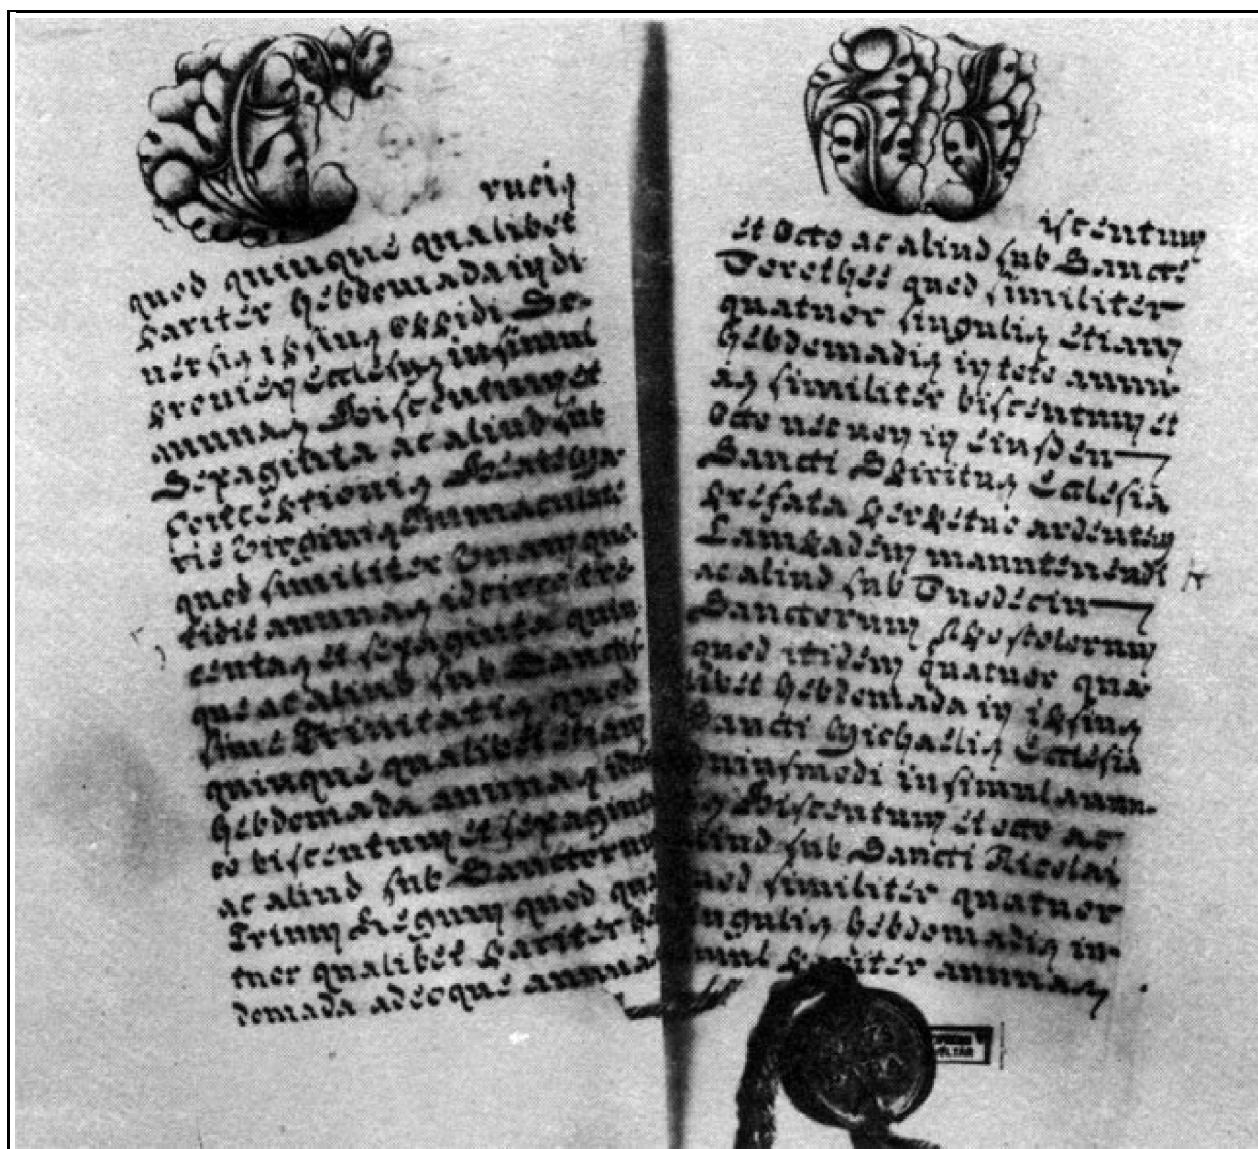 rucis
quod quinque qualibet
pariter hebdomada in di-
versis ipsius oppidi Se-
proniensis ecclesiis insimul
annuas Biscentum et
Sexaginta ac aliud sub
Conceptionis Beate Ma-
rie Virginis Immaculate
quod similiter Unam quo-
tidie annuas idcirco tre-
centas et sexaginta quin-
que ac aliud sub Sanctis-
sime Trinitatis quod
quinque qualibet etiam
hebdomada annuas
biscentum et sexaginta
ac aliud sub Sanctorum
Trium Regum quod qua
tuor qualibet pariter heb
domada adeoque annuas
iscentum
et octo ac aliud sub Sancte
Dorothee quod similiter
quatuor singulis etiam
hebdomadis in toto annu-
as similiter biscentum et
octo nec non in eiusdem
Sancti Spiritus Ecclesia
prefata perpetuo ardentem
Lampadem manutenendi
ac aliud sub Duodecim
Sanctorum Apostolorum
quod itidem quatuor qua-
libet hebdomada in ipsius
Sancti Michaelis Ecclesia
huiusmodi insimul annu-
as Biscentum et octo ac
aliud sub Sancti Nicolai
quod similiter quatuor
singulis hebdomadis in-
simul pariter annuas